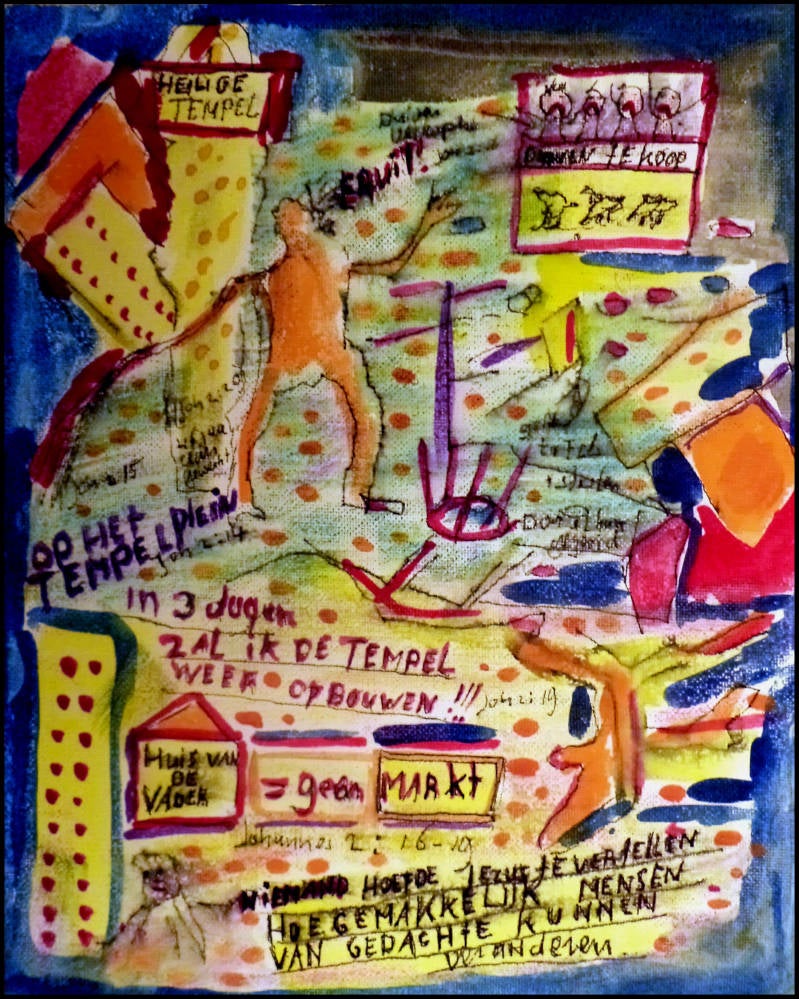 HEILIGE
TEMPEL
Duiven
verkopke
ERUIT!
DUIVEN TE KOOP
Joh 2:15
Joh 2:20
OP HET
TEMPELPLEIN
Joh 2:14
in 3 dagen
ZAL IK DE TEMPEL
WEER OPBOUWEN !!!
Joh 2:19
HUIS VAN
DE
VADER
= geen
MARKt
Johannes 2:16-
NIEMAND HOEFDE JEZUS TE VERTELLEN
HOE GEMAKKELIJK MENSEN
VAN GEDACHTE KUNNEN
Veranderen